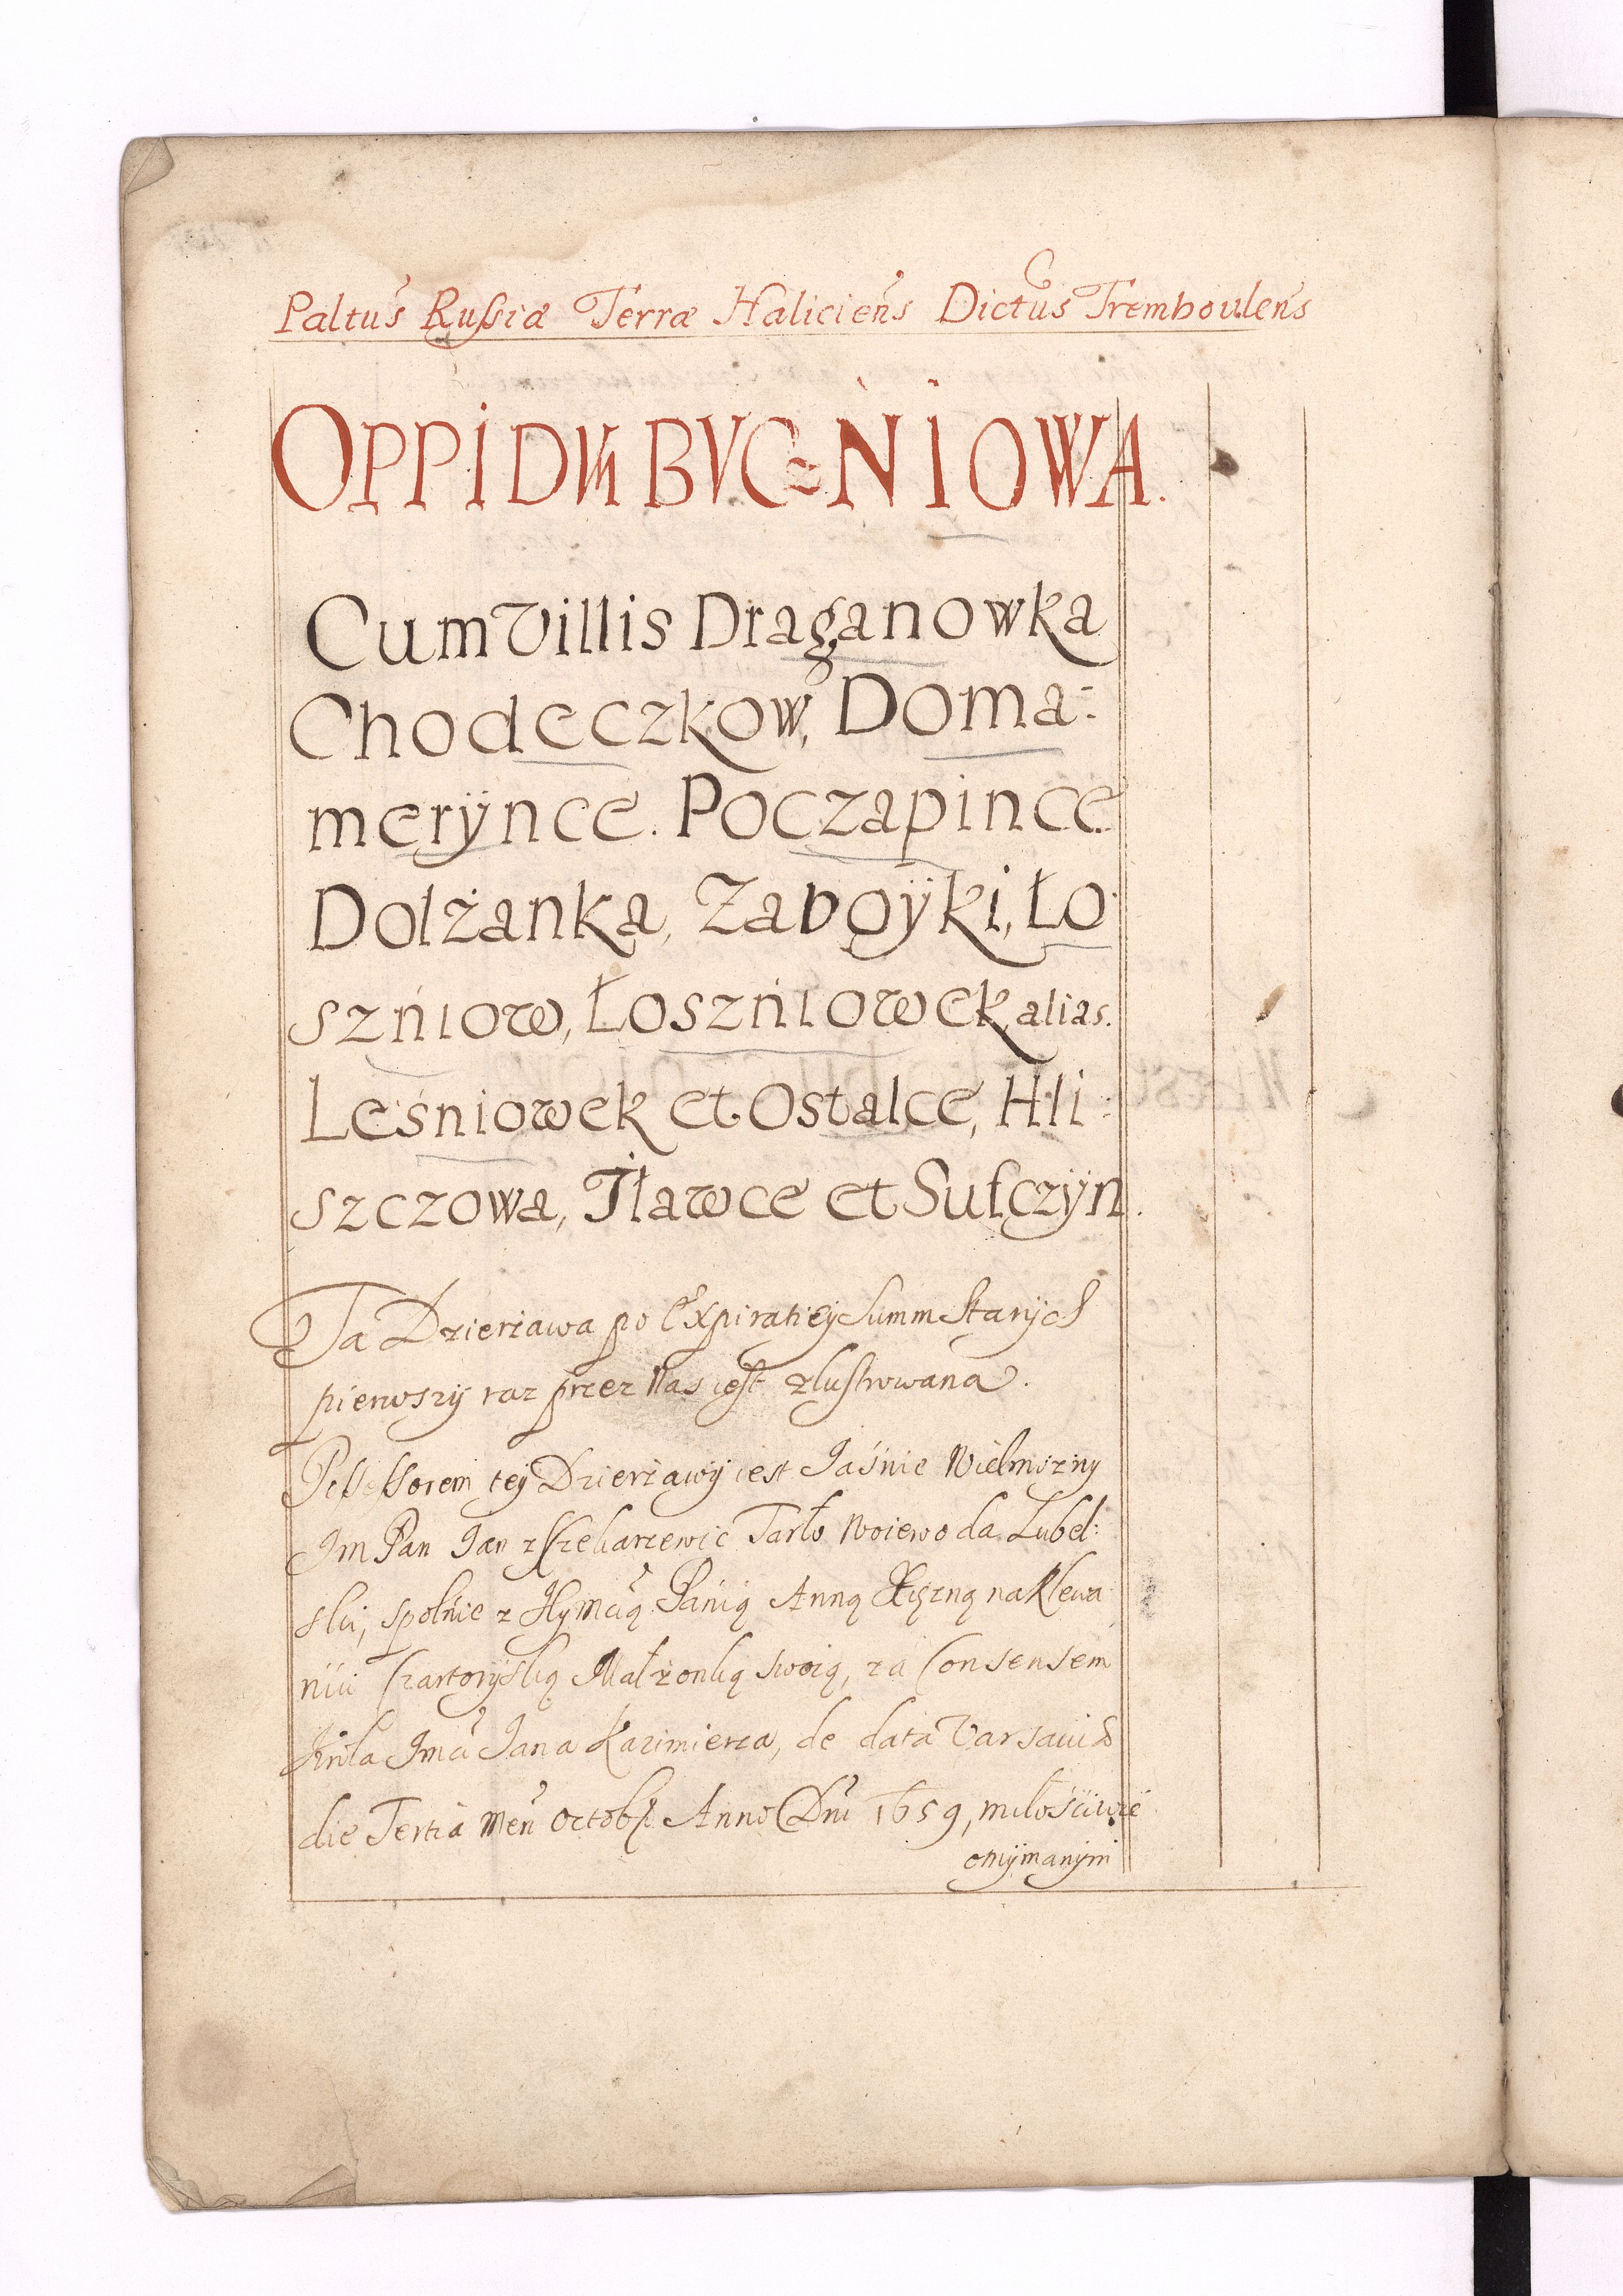 Paltus Rußiæ Terræ Haliciens Dictus Trembovlens
OPPIDUM BVC=NIOWA.
Cum Villis Draganowka
Chodeczkow, Doma:
merÿnce. Poczapince
Dolżanka, Zaboÿki, Ło
szńiow, Łoszńiowek alias.
Leśniowek et Ostalce, Hli:
szczowa, Iławce et Sułczÿn.
Ta Dzierżawa po Expiratieÿ Summ Starÿch
pierwszÿ raz przez Nas iest zlustrowana.
Possessorem teÿ Dzierżawÿ iest Jaśnie Wielmożny
Jm Pan Jan z Czekarzewic Tarło Woiewoda Lubel:
ski, spolnie z Jeÿmcią Panią Anną Xiężną na Klewa
niu Czartorÿską Małżonką swoią, za Consensem
Krola Jmci Jana Kazimierza, de data Varsaviæ
die Tertia Men Octobr Anno Dni 1659, miłościwie
otrzÿmanÿm